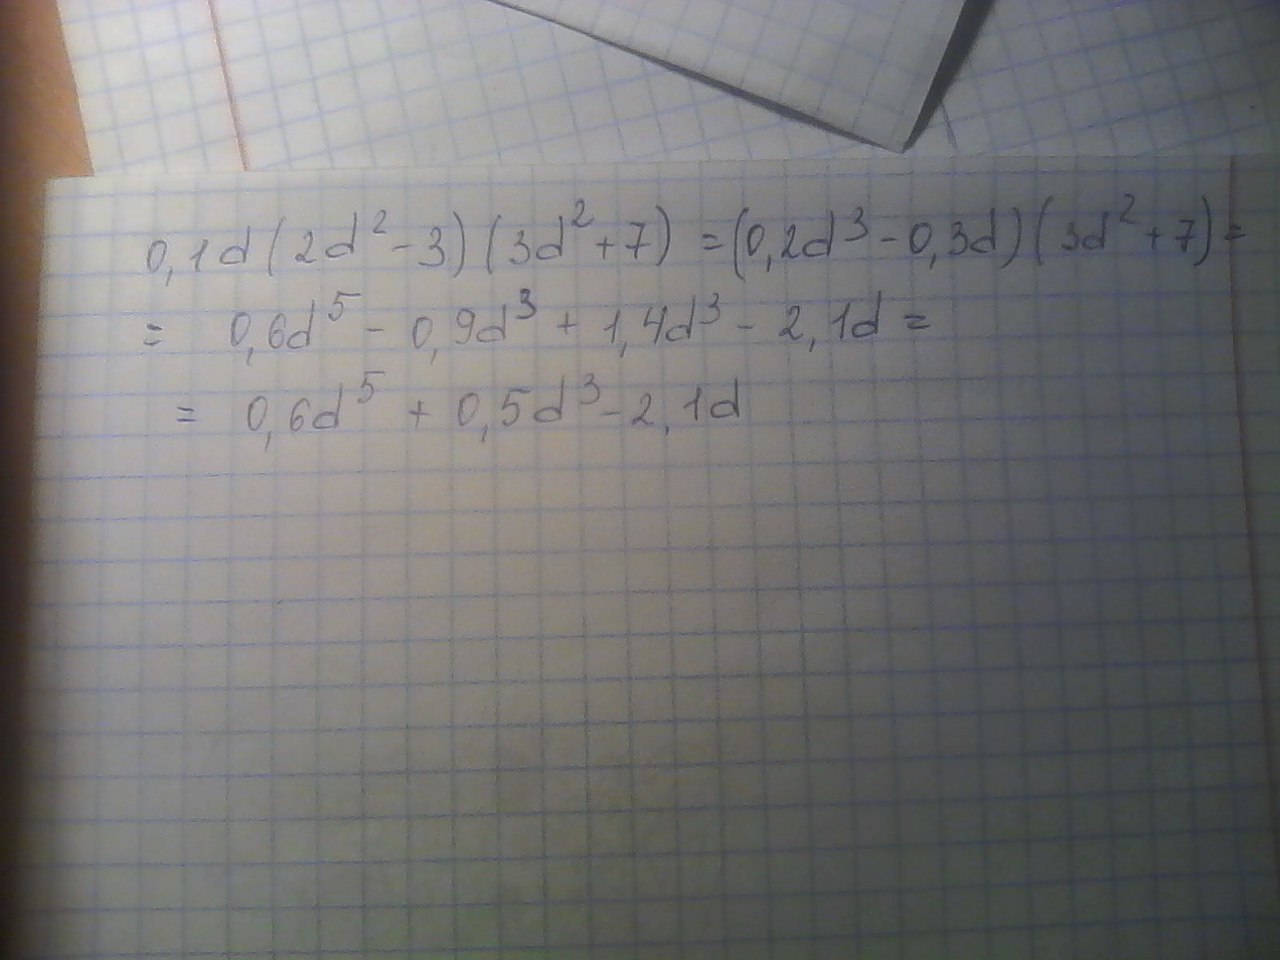 0,1d(2d²-3)(3d²+7)=(0,2d³-0,3d)(3d²+7)=
= 0,6d⁵ - 0,9d³ + 1,4d³ - 2,1d =
= 0,6d⁵ + 0,5d³-2,1d